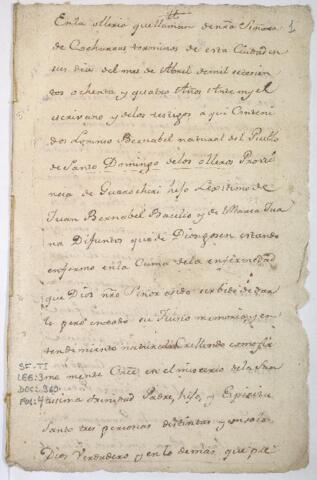 1
En la olleria que llaman de nra Señora
de Cocharcas terminos de esta Ciudad en
seis dias del mes de Abril de mil setecien
tos ochenta y quatro Años Ante my el
escrivano y delos testigos aqui Conteni
dos Lorenso Bernabel natural del Pueblo
de Santo Domingo delos olleros Provin
ncia de Guarochiri hijo Lexitimo de
Juan Bernabel Bacilio y de Maria Jua
na Difuntos que de Dios gosen estando
enfermo en la Cama dela enfermedad
que Dios nro Señor asido serbido de dar
le pero en todo su Juisio memoria y en
tendimiento natural Crellendo como fir
me mente Creo en el misterio dela San
tissima trinidad Padre, hijo, y Espiritu
Santo tres personas distintas y un solo
Dios Verdadero y en lo demas que
SF-TI
LEG: 3
DOC: 360
FOL: 4